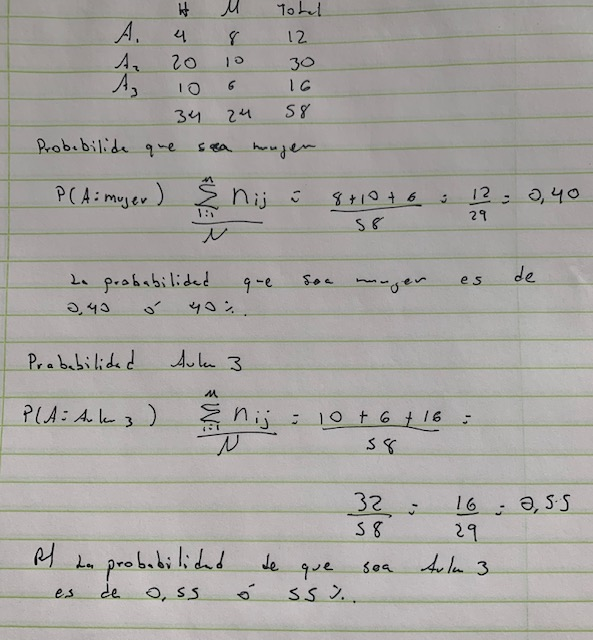 H M Total
A₁ 4 8 12
A₂ 20 10 30
A₃ 10 6 16
34 24 58
Probabilide que sea mujer
P(A=mujer) \frac{\sum_{i=1}^{M} n_{ij}}{N} = \frac{8+10+6}{58} = \frac{12}{29} = 0,40
La probabilidad que sea mujer es de
0,40 ó 40%.
Probabilidad Aula 3
P(A=Aula 3) \frac{\sum_{i=1}^{M} n_{ij}}{N} = \frac{10+6+16}{58} =
\frac{32}{58} = \frac{16}{29} = 0,55
R/ La probabilidad de que sea Aula 3
es de 0,55 ó 55%.